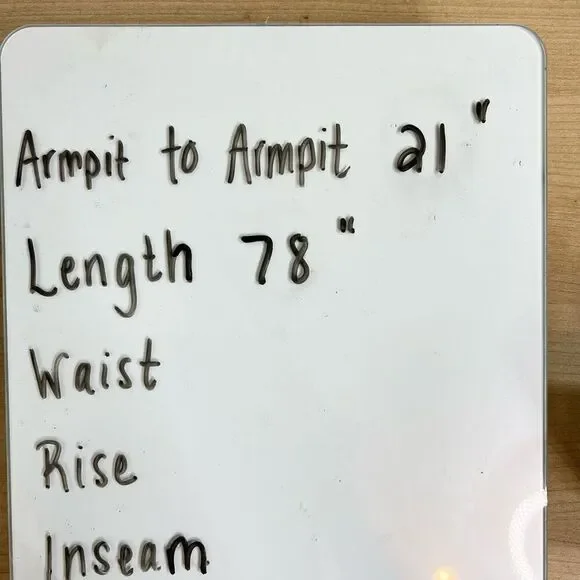 Armpit to Armpit 21"
Length 78"
Waist
Rise
Inseam